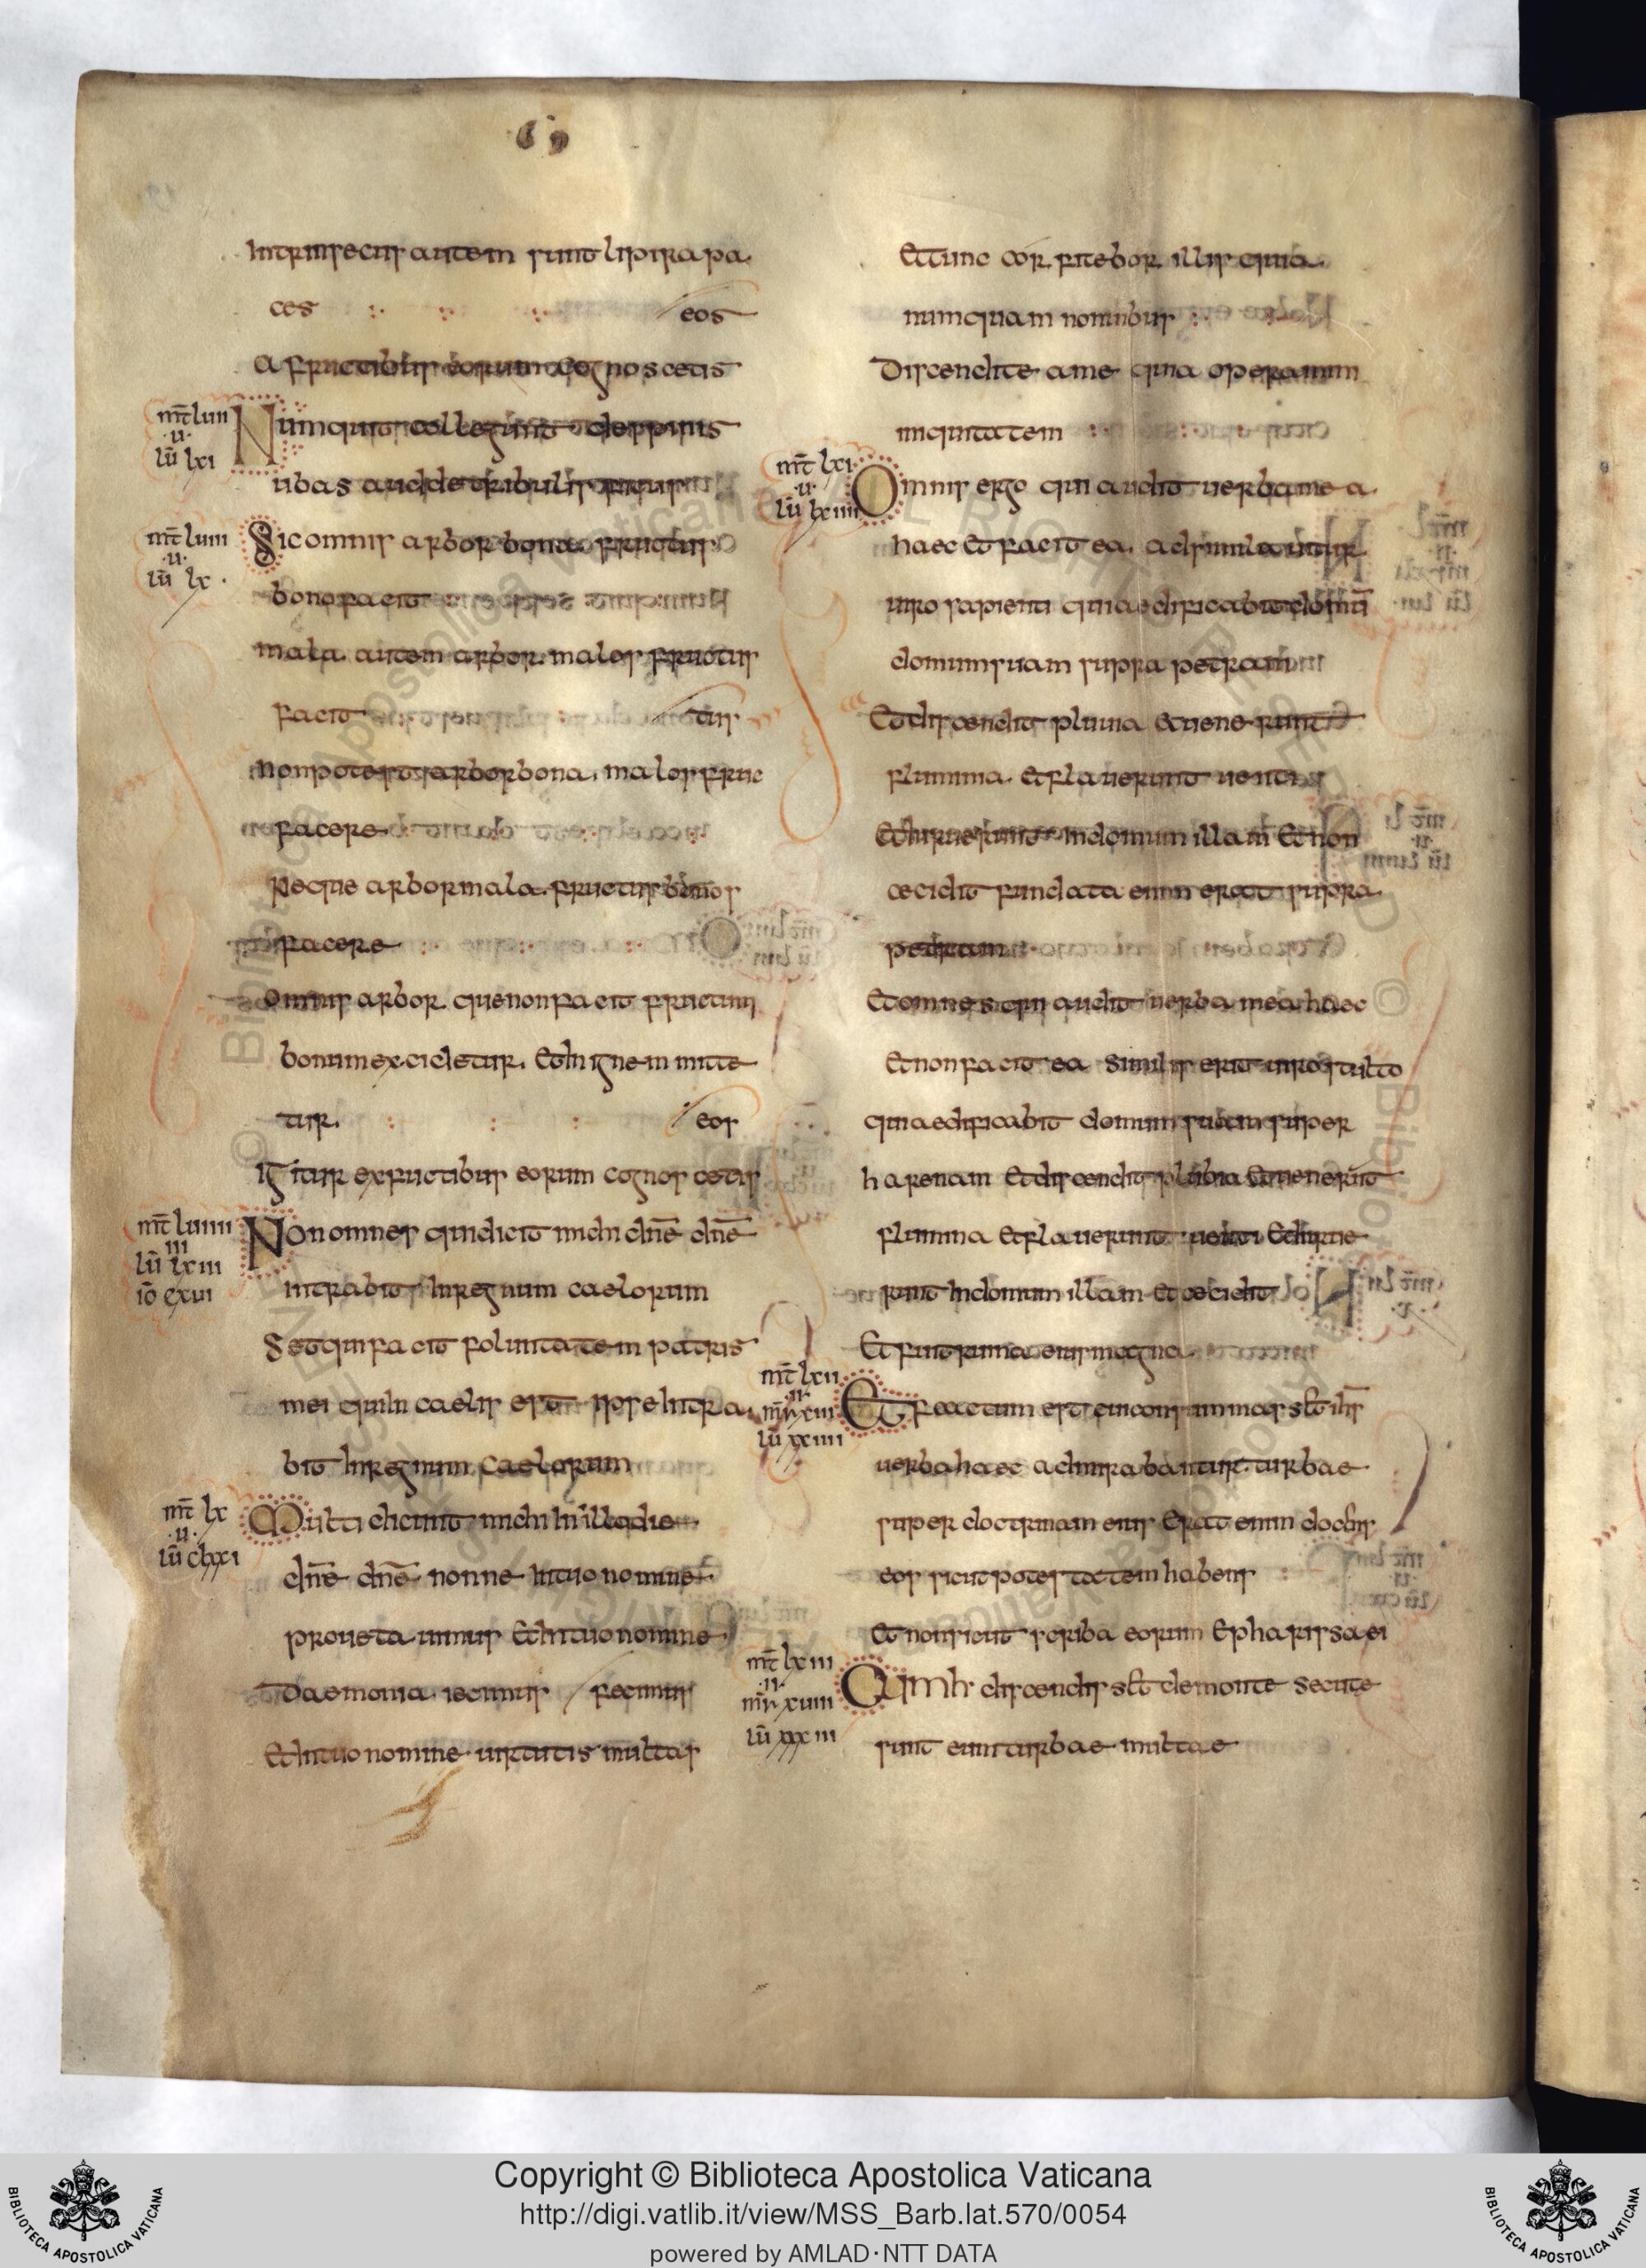 Intrinsecus autem sunt lupi rapa
ces eos
a fructibus eorum cognoscetis
mt lvii
v
lu lxi
Numquit collegunt de spinis
ubas aud de tribulis ficus
mt lviii
v
lu lx
Sic omnis arbor bona fructus
bonos facit
mala autem arbor malos fructus
facit tus
non potest arbor bona malos fruc
facere
Neque arbor mala fructus bonos
facere
omnis arbor que non facit fructum
bonum excidetur Et in ignem mitte
tur eos
Igitur ex fructibus eorum cognoscetis
mt lviiii
iii
lu lxiii
io cxvi
Non omnes qui dicit michi dne dne
intrabit in regnum caelorum
Set qui facit foluntatem patris
mei qui in caelis est ipse intra
bit in regnum caelorum
mt lx
v
lu clxxi
Multi dicunt michi in illa die
dne dne nonne in tuo nomine
profetavimus Et in tuo nomine
daemonia iecimus fecimus
Et in tuo nomine virtutis multas
Et tunc confitebor illis quia
numquam noui bus
Discendite a me qui a operamini
iniquitatem
mt lxi
v
lu lxiiii
Omnis ergo qui audit uerba me a
haec Et facit ea adsimilauitur
uiro sapienti qui aedificabit domu
domum suam supra petram
Et discendit pluuia Et uenerunt
flumina Et flauerunt uenti
Et inruerunt in domum illam Et non
cecidit fundata enim erat supra
petram
Et omnes qui audit uerba mea haec
Et non facit ea similis erit uiro stulto
qui aedificabit domum suam super
harenam Et discendit plubia Et uenerunt
flumina Et flauerunt uenti Et inrue
runt In domum illam Et cecidit
Et fuit ruina eius magna
mt lxii
ii
mr xiii
lu xxiiii
Et factum est cum consummas set ihs
uerba haec admirabantur turbae
super doctrinam eius Erat enim docens
eos sicut potestatem habens
Et non sicut scriba eorum E pharissaei
mt lxiii
ii
mr xviii
lu xxxiii
Cum ihs discendis set de monte secute
sunt eum turbae multae
Copyright © Biblioteca Apostolica Vaticana
http://digi.vatlib.it/view/MSS_Barb.lat.570/0054
powered by AMLAD·NTT DATA
BIBLIOTECA APOSTOLICA VATICANA
BIBLIOTECA APOSTOLICA VATICANA